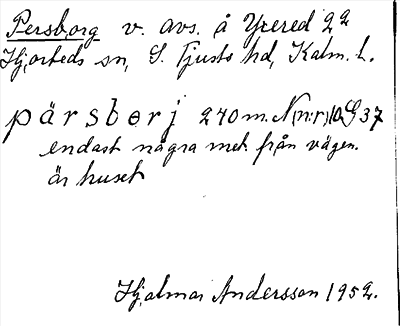 Persborg v. avs. å Yxered 2 2
Hjorteds sn, S. Tjusts hd, Kalm. L.
pärsbərj 240 m. N (n:r) 10 G 37
endast några met. från vägen.
är huset
Hjalmar Andersson 1952.